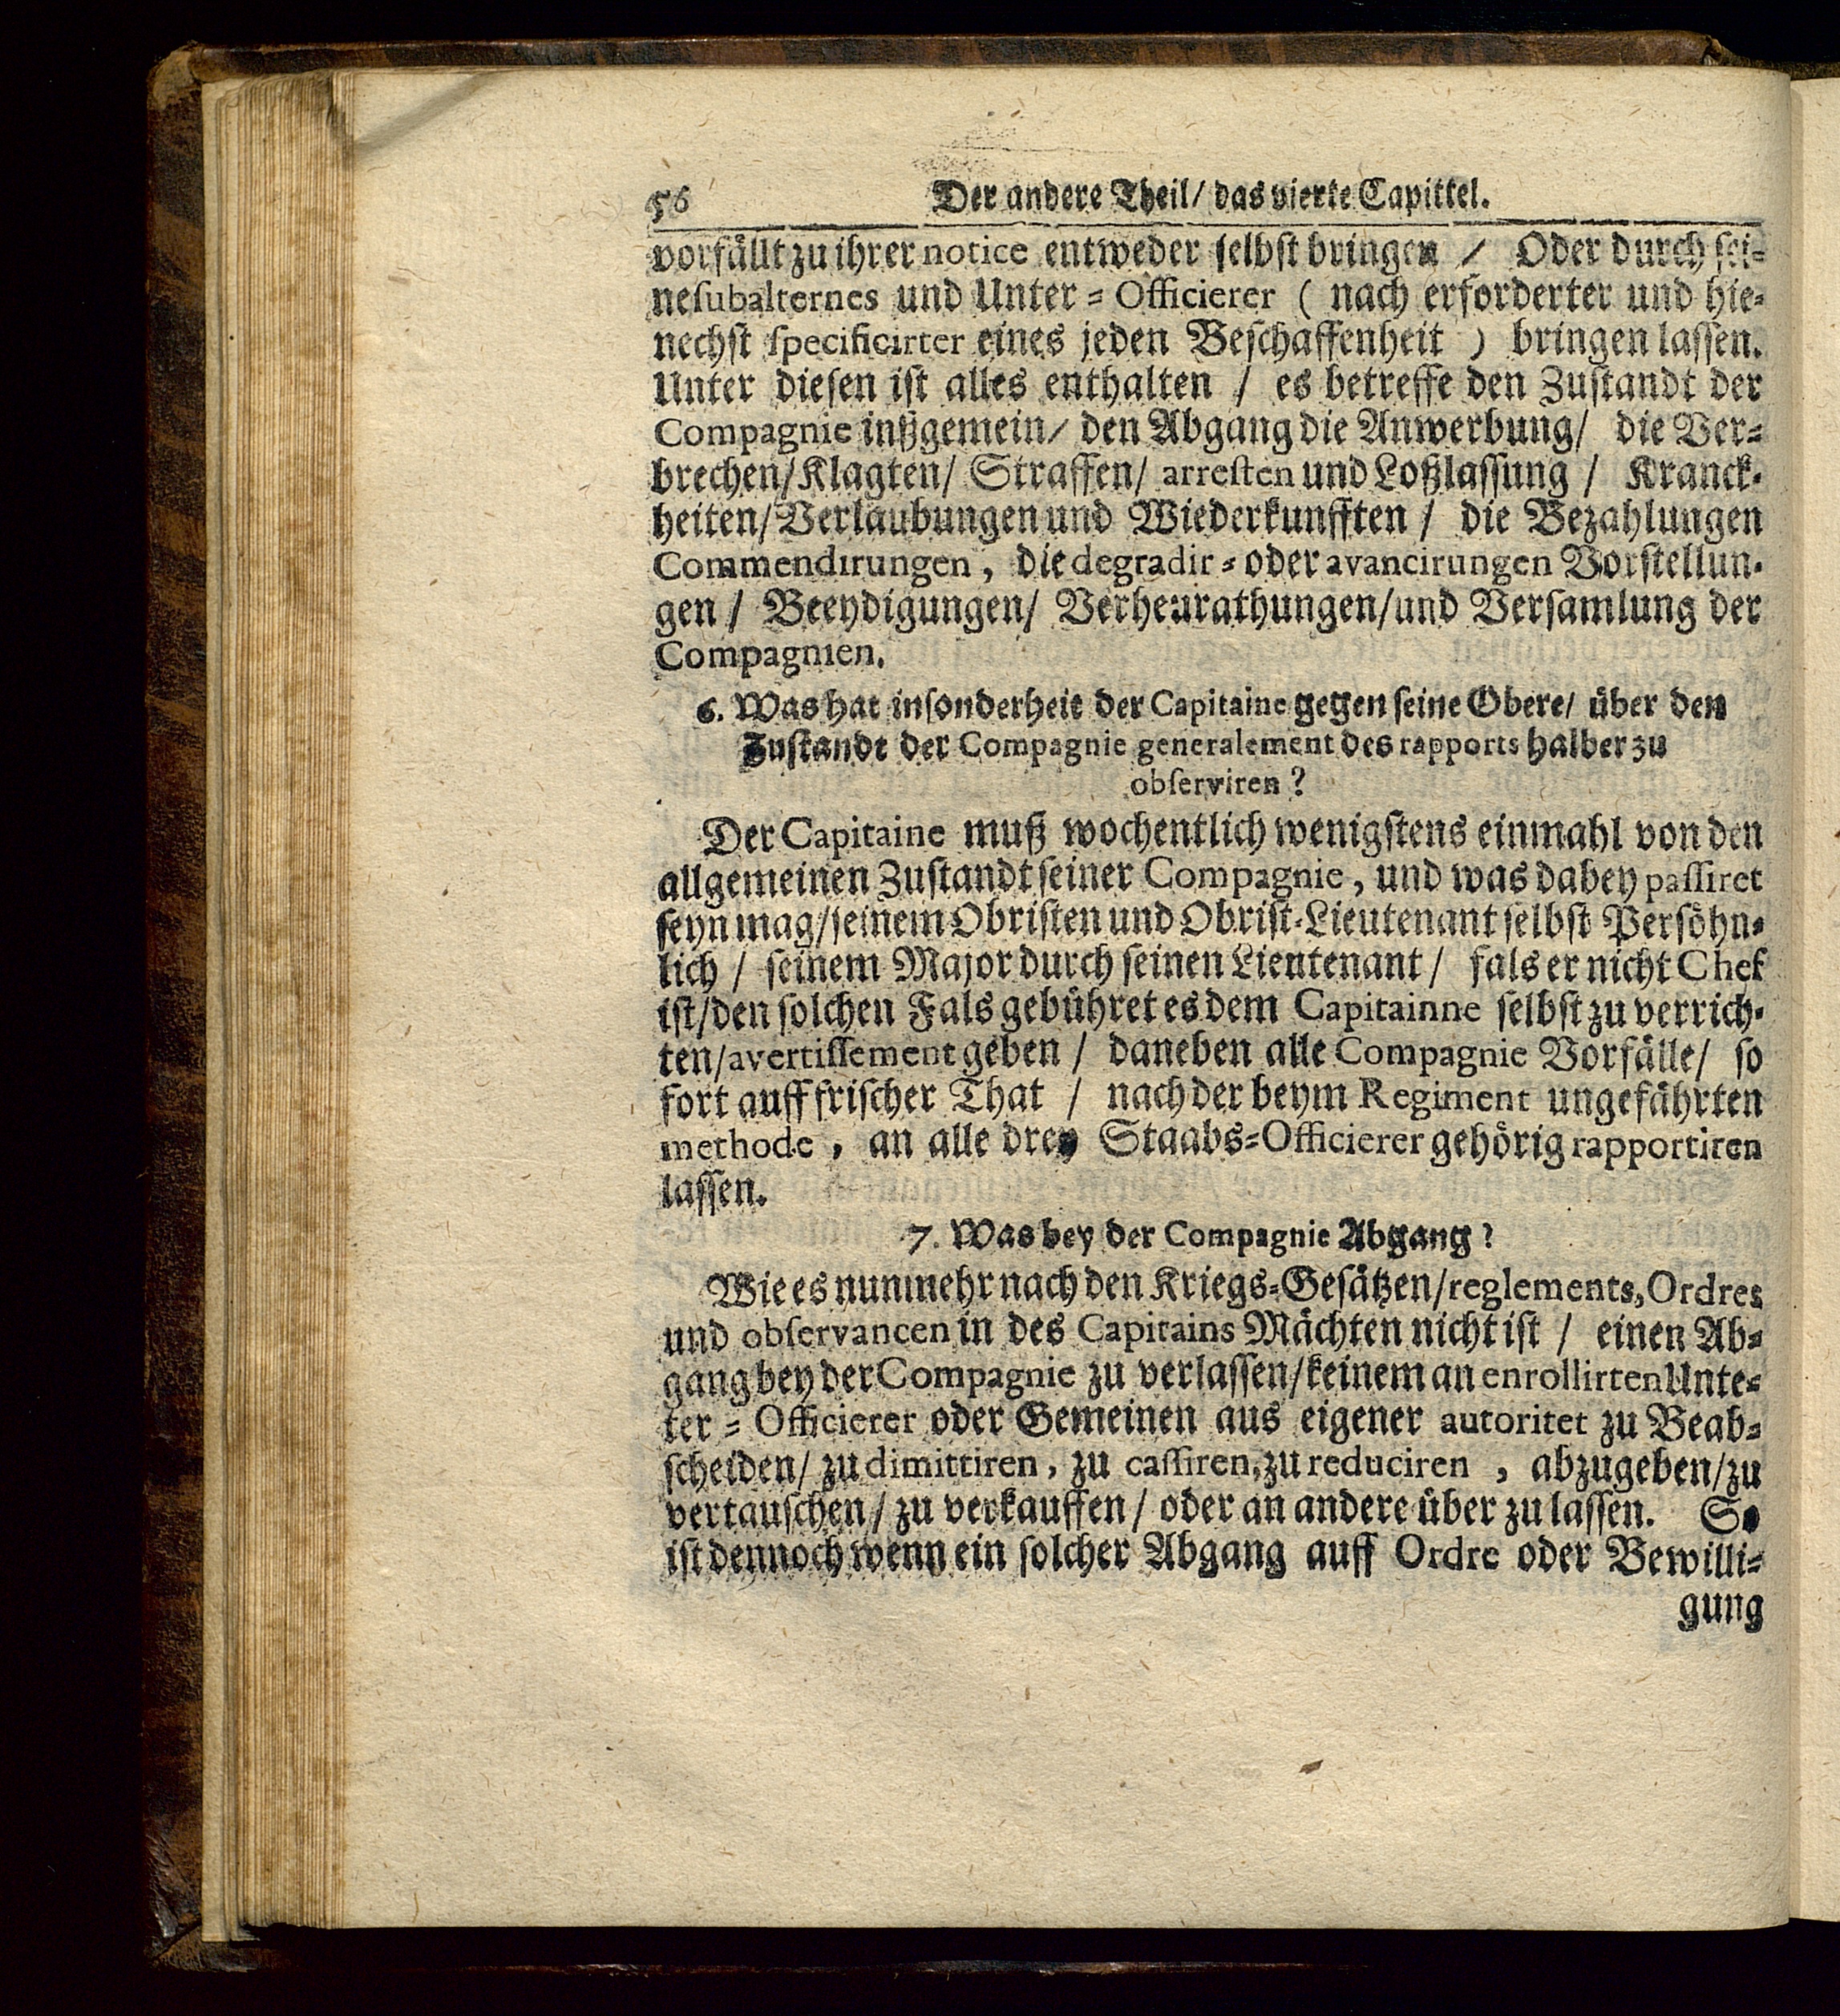 56 Der andere Theil/ das vierte Capittel.
vorfällt zu ihrer notice entweder selbst bringen / Oder durch sei-
ne subalternes und Unter-Officierer ( nach erforderter und hie-
nechst specificirter eines jeden Beschaffenheit ) bringen lassen.
Unter diesen ist alles enthalten / es betreffe den Zustandt der
Compagnie inßgemein/ den Abgang die Anwerbung/ die Ver-
brechen/Klagten/ Straffen/ arresten und Loßlassung / Kranck-
heiten/Verlaubungen und Wiederkunfften / die Bezahlungen
Commendirungen, die degradir- oder avancirungen Vorstellun-
gen / Beeydigungen/ Verheurathungen/und Versamlung der
Compagnien.
6. Was hat insonderheit der Capitaine gegen seine Obere/ über den
Zustandt der Compagnie generalement des rapports halber zu
observiren?
Der Capitaine muß wochentlich wenigstens einmahl von den
allgemeinen Zustandt seiner Compagnie, und was dabey passiret
seyn mag/seinem Obristen und Obrist-Lieutenant selbst Persöhn-
lich / seinem Major durch seinen Lientenant / fals er nicht Chef
ist/den solchen Fals gebühret es dem Capitainne selbst zu verrich-
ten/avertissement geben / daneben alle Compagnie Vorfälle/ so
fort auff frischer That / nach der beym Regiment ungefährten
methode, an alle drey Staabs-Officierer gehörig rapportiren
lassen.
7. Was bey der Compagnie Abgang?
Wie es nunmehr nach den Kriegs-Gesätzen/reglements, Ordres
und observancen in des Capitains Mächten nicht ist / einen Ab-
gang bey der Compagnie zu verlassen/keinem an enrollirten Unte-
ter-Officierer oder Gemeinen aus eigener autoritet zu Beab-
scheiden/ zu dimittiren, zu cassiren, zu reduciren, abzugeben/zu
vertauschen/ zu verkauffen/ oder an andere über zu lassen. So
ist dennoch wenn ein solcher Abgang auff Ordre oder Bewilli-
gung